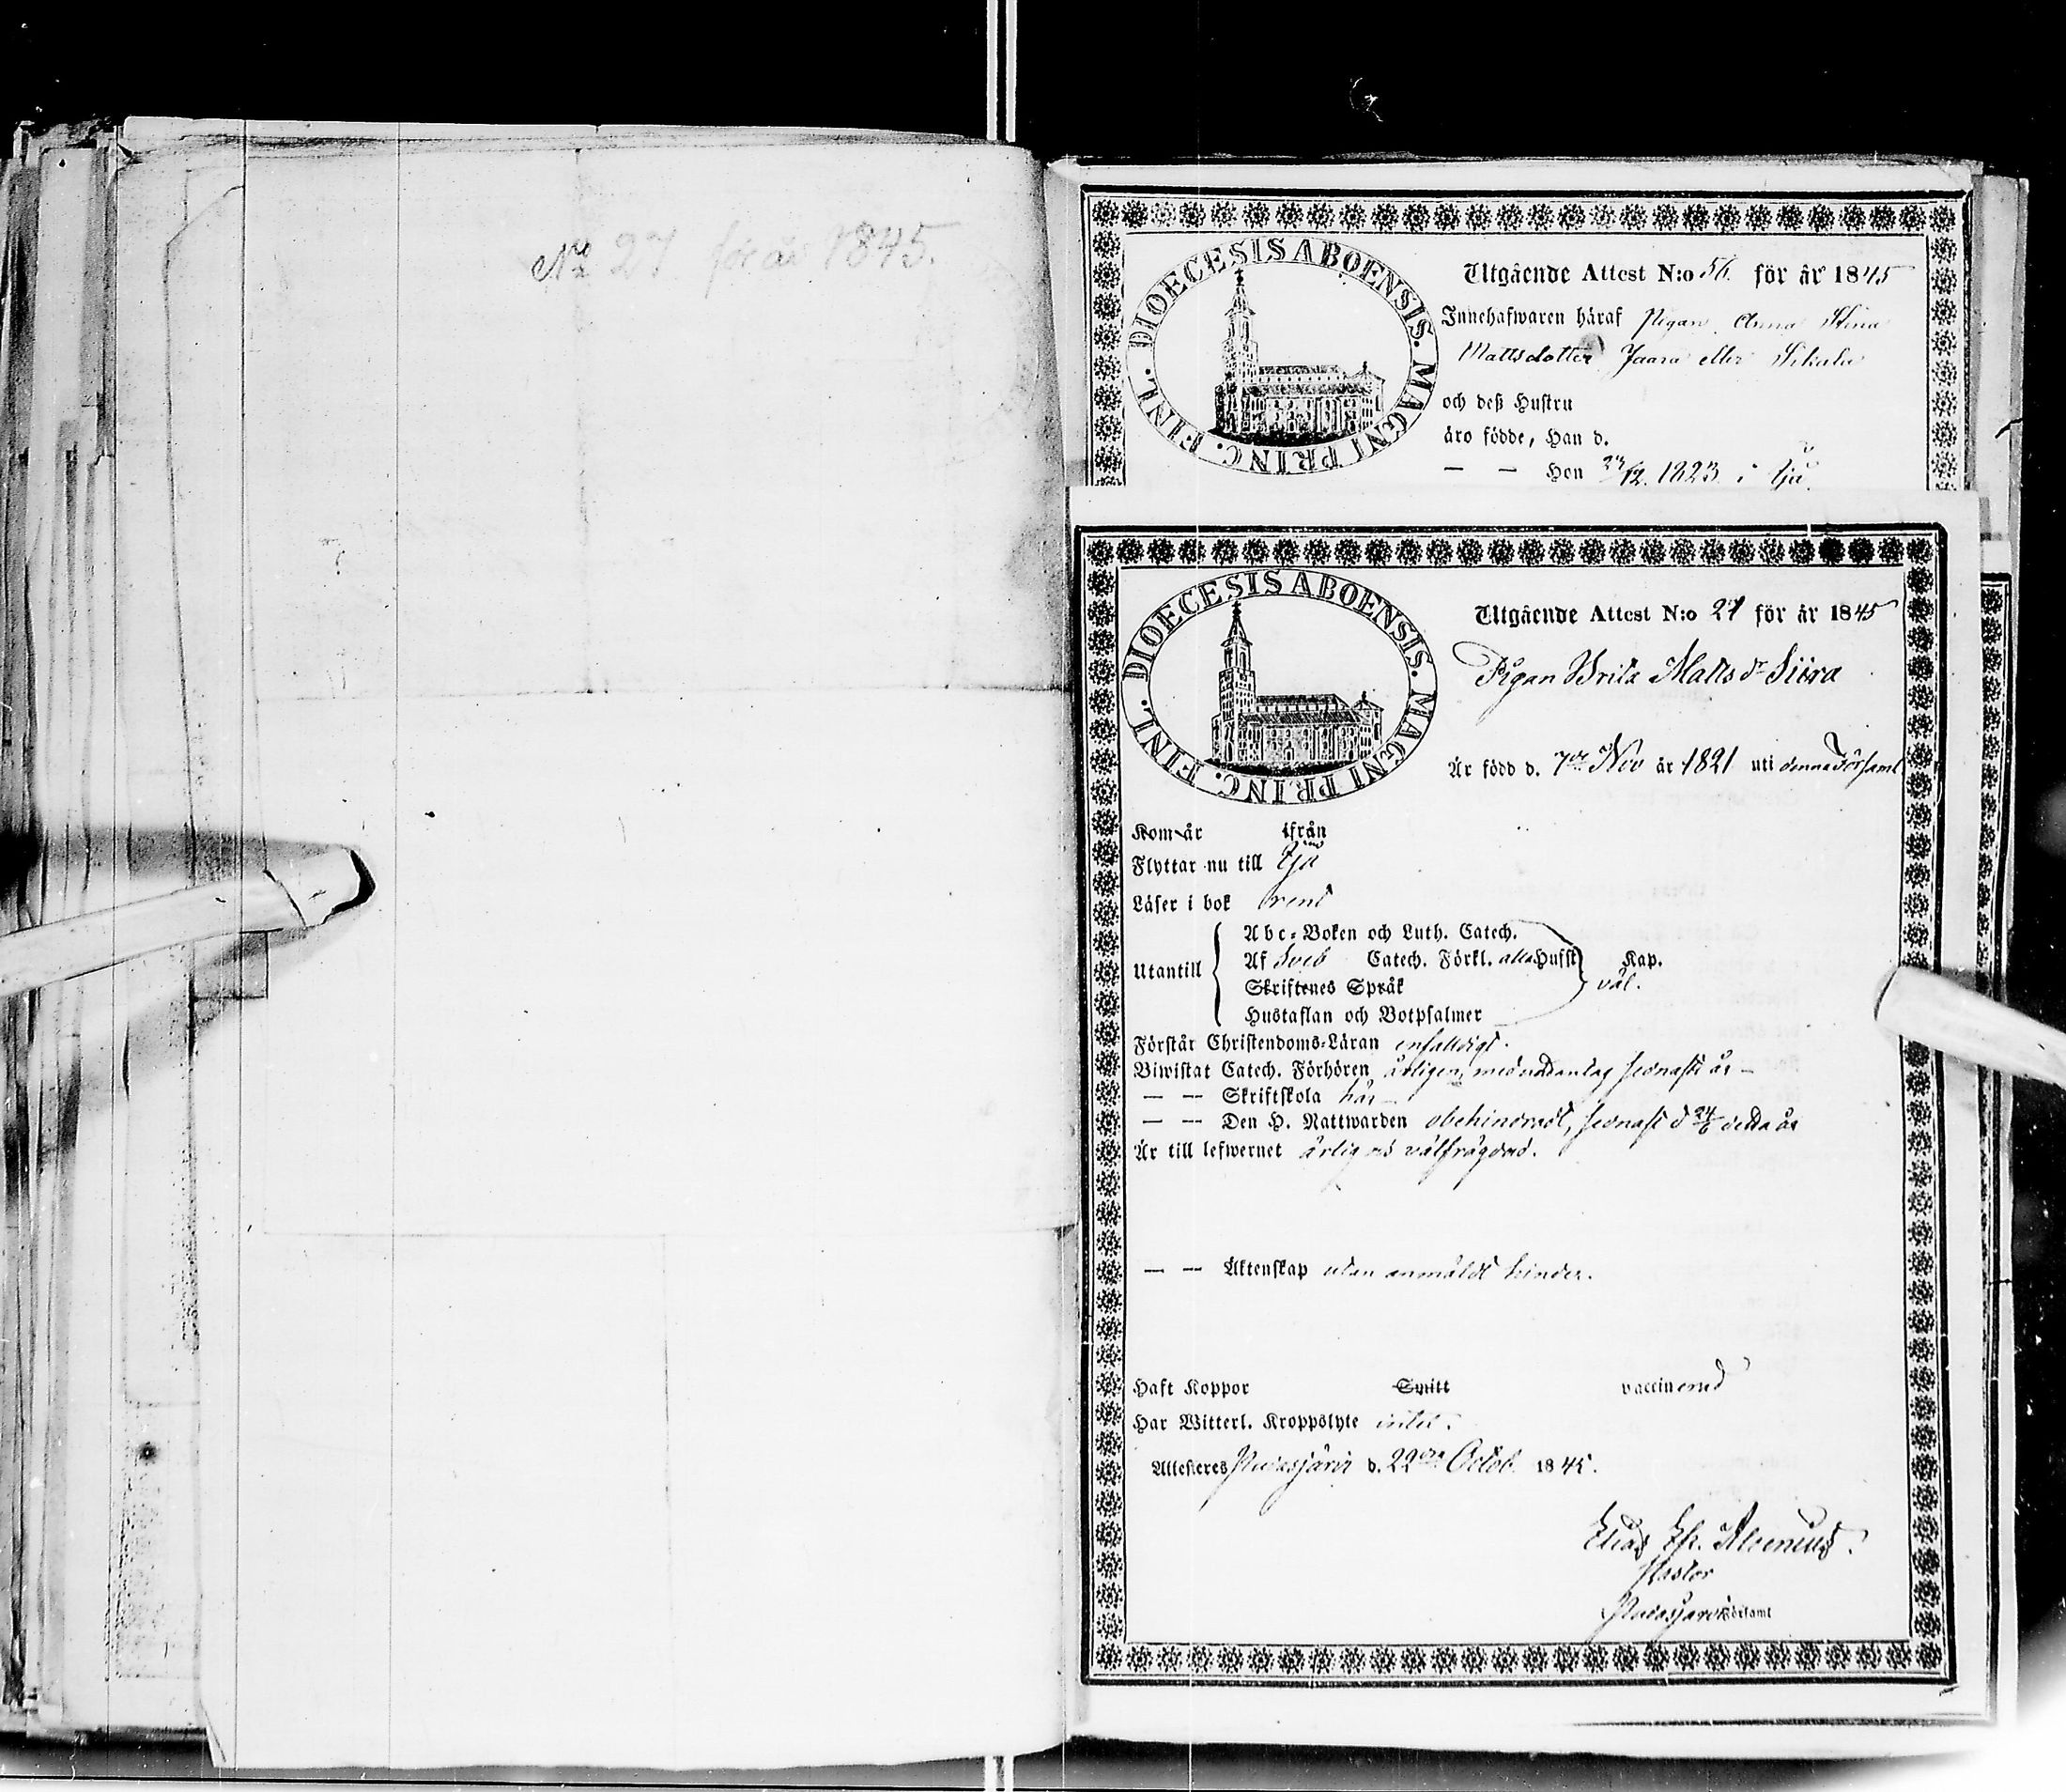 No 27 för år 1845.
DIOECESIS ABOENSIS. MAGNI PRINC. FINL.
Utgående Attest N:o 56. för år 1845
Innehafwaren häraf Pigan Anna Stina
Mattsdotter Jaara eller Sikala
och deß Hustru
äro födde, Han d.
— — Hon 24/12 1823 i Ijå
DIOECESIS ABOENSIS. MAGNI PRINC. FINL.
Utgående Attest N:o 27 för år 1845
Pigan Brita Matts dr Siira
Är född d. 7de Nov år 1821 uti denna Församl
Kom år ifrån
Flyttar nu till Ijå
Läser i bok rent
Utantill
Abc-Boken och Luth. Catech.
Af Sveb Catech. Förkl. alla Hufst Kap.
Skriftenes Språk väl.
Hustaflan och Botpsalmer
Förstår Christendoms-Läran enfaldigt.
Biwistat Catech. Förhören årligen, med undantag sednaste år –
— — Skriftskola här –
— — Den H. Nattwarden obehindradt, sednast d 24/6 detta år
Är till lefwernet ärlig och välfrägdad.
— — Äktenskap utan anmäldt hinder.
Haft Koppor Snitt vaccinerad
Har Witterl. Kroppslyte intet.
Attesteres Pudasjärvi d. 22dra Octob. 1845.
Elias
Pastor
Pudasjärvi Församl